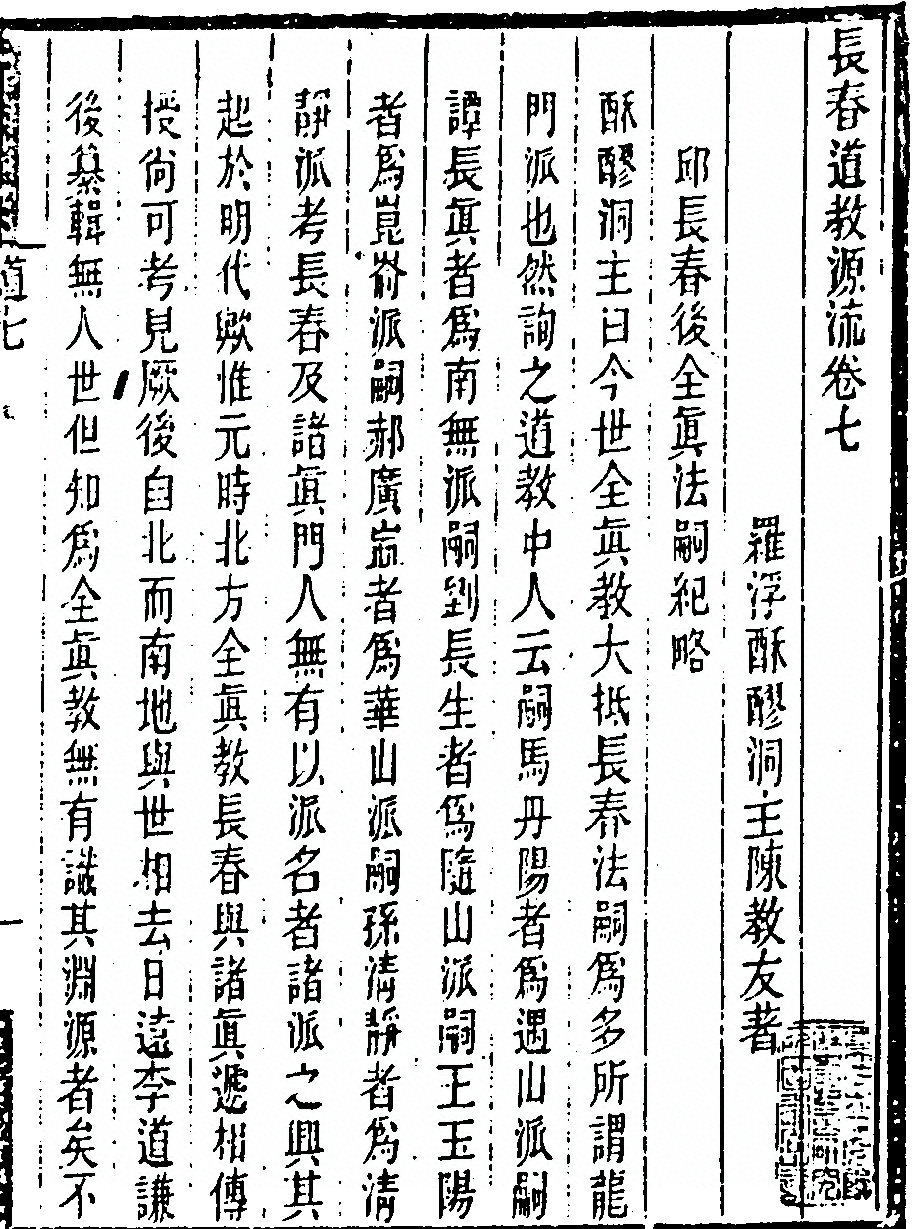 長春道教源流卷七
羅浮酥醪洞主陳教友著
邱長春後全眞法嗣紀略
酥醪洞主曰今世全眞教大抵長春法嗣爲多所謂龍
門派也然詢之道教中人云嗣馬丹陽者爲遇山派嗣
譚長眞者爲南無派嗣劉長生者爲隨山派嗣王玉陽
者爲崑嵛派嗣郝廣寍者爲華山派嗣孫淸靜者爲淸
靜派考長春及諸眞門人無有以派名者諸派之興其
起於明代歟惟元時北方全眞教長春與諸眞遞相傳
授尙可考見厥後自北而南地與世相去日遠李道謙
後纂輯無人世但知爲全眞教無有識其淵源者矣不
道七
一